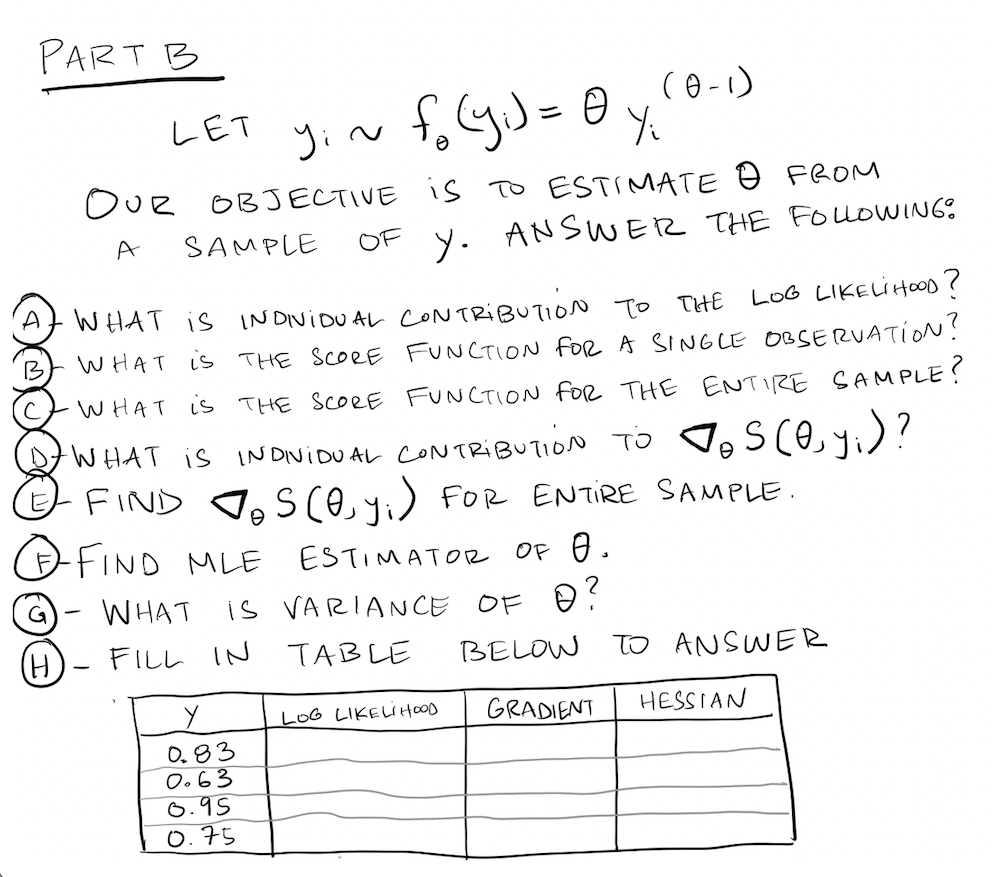 PART B
LET yᵢ ~ f_θ(yᵢ) = θ yᵢ^(θ-1)
OUR OBJECTIVE iS TO ESTIMATE θ FROM
A SAMPLE OF y. ANSWER THE FOLLOWING:
A - WHAT iS INDIVIDUAL CONTRIBUTION TO THE LOG LIKELIHOOD?
B - WHAT iS THE SCORE FUNCTION FOR A SINGLE OBSERVATION?
C - WHAT iS THE SCORE FUNCTION FOR THE ENTIRE SAMPLE?
D - WHAT iS INDIVIDUAL CONTRIBUTION TO ∇_θ S(θ, yᵢ)?
E - FIND ∇_θ S(θ, yᵢ) FOR ENTIRE SAMPLE.
F - FIND MLE ESTIMATOR OF θ.
G - WHAT IS VARIANCE OF θ?
H - FILL IN TABLE BELOW TO ANSWER
Y LOG LIKELIHOOD GRADIENT HESSIAN
0.83
0.63
0.95
0.75